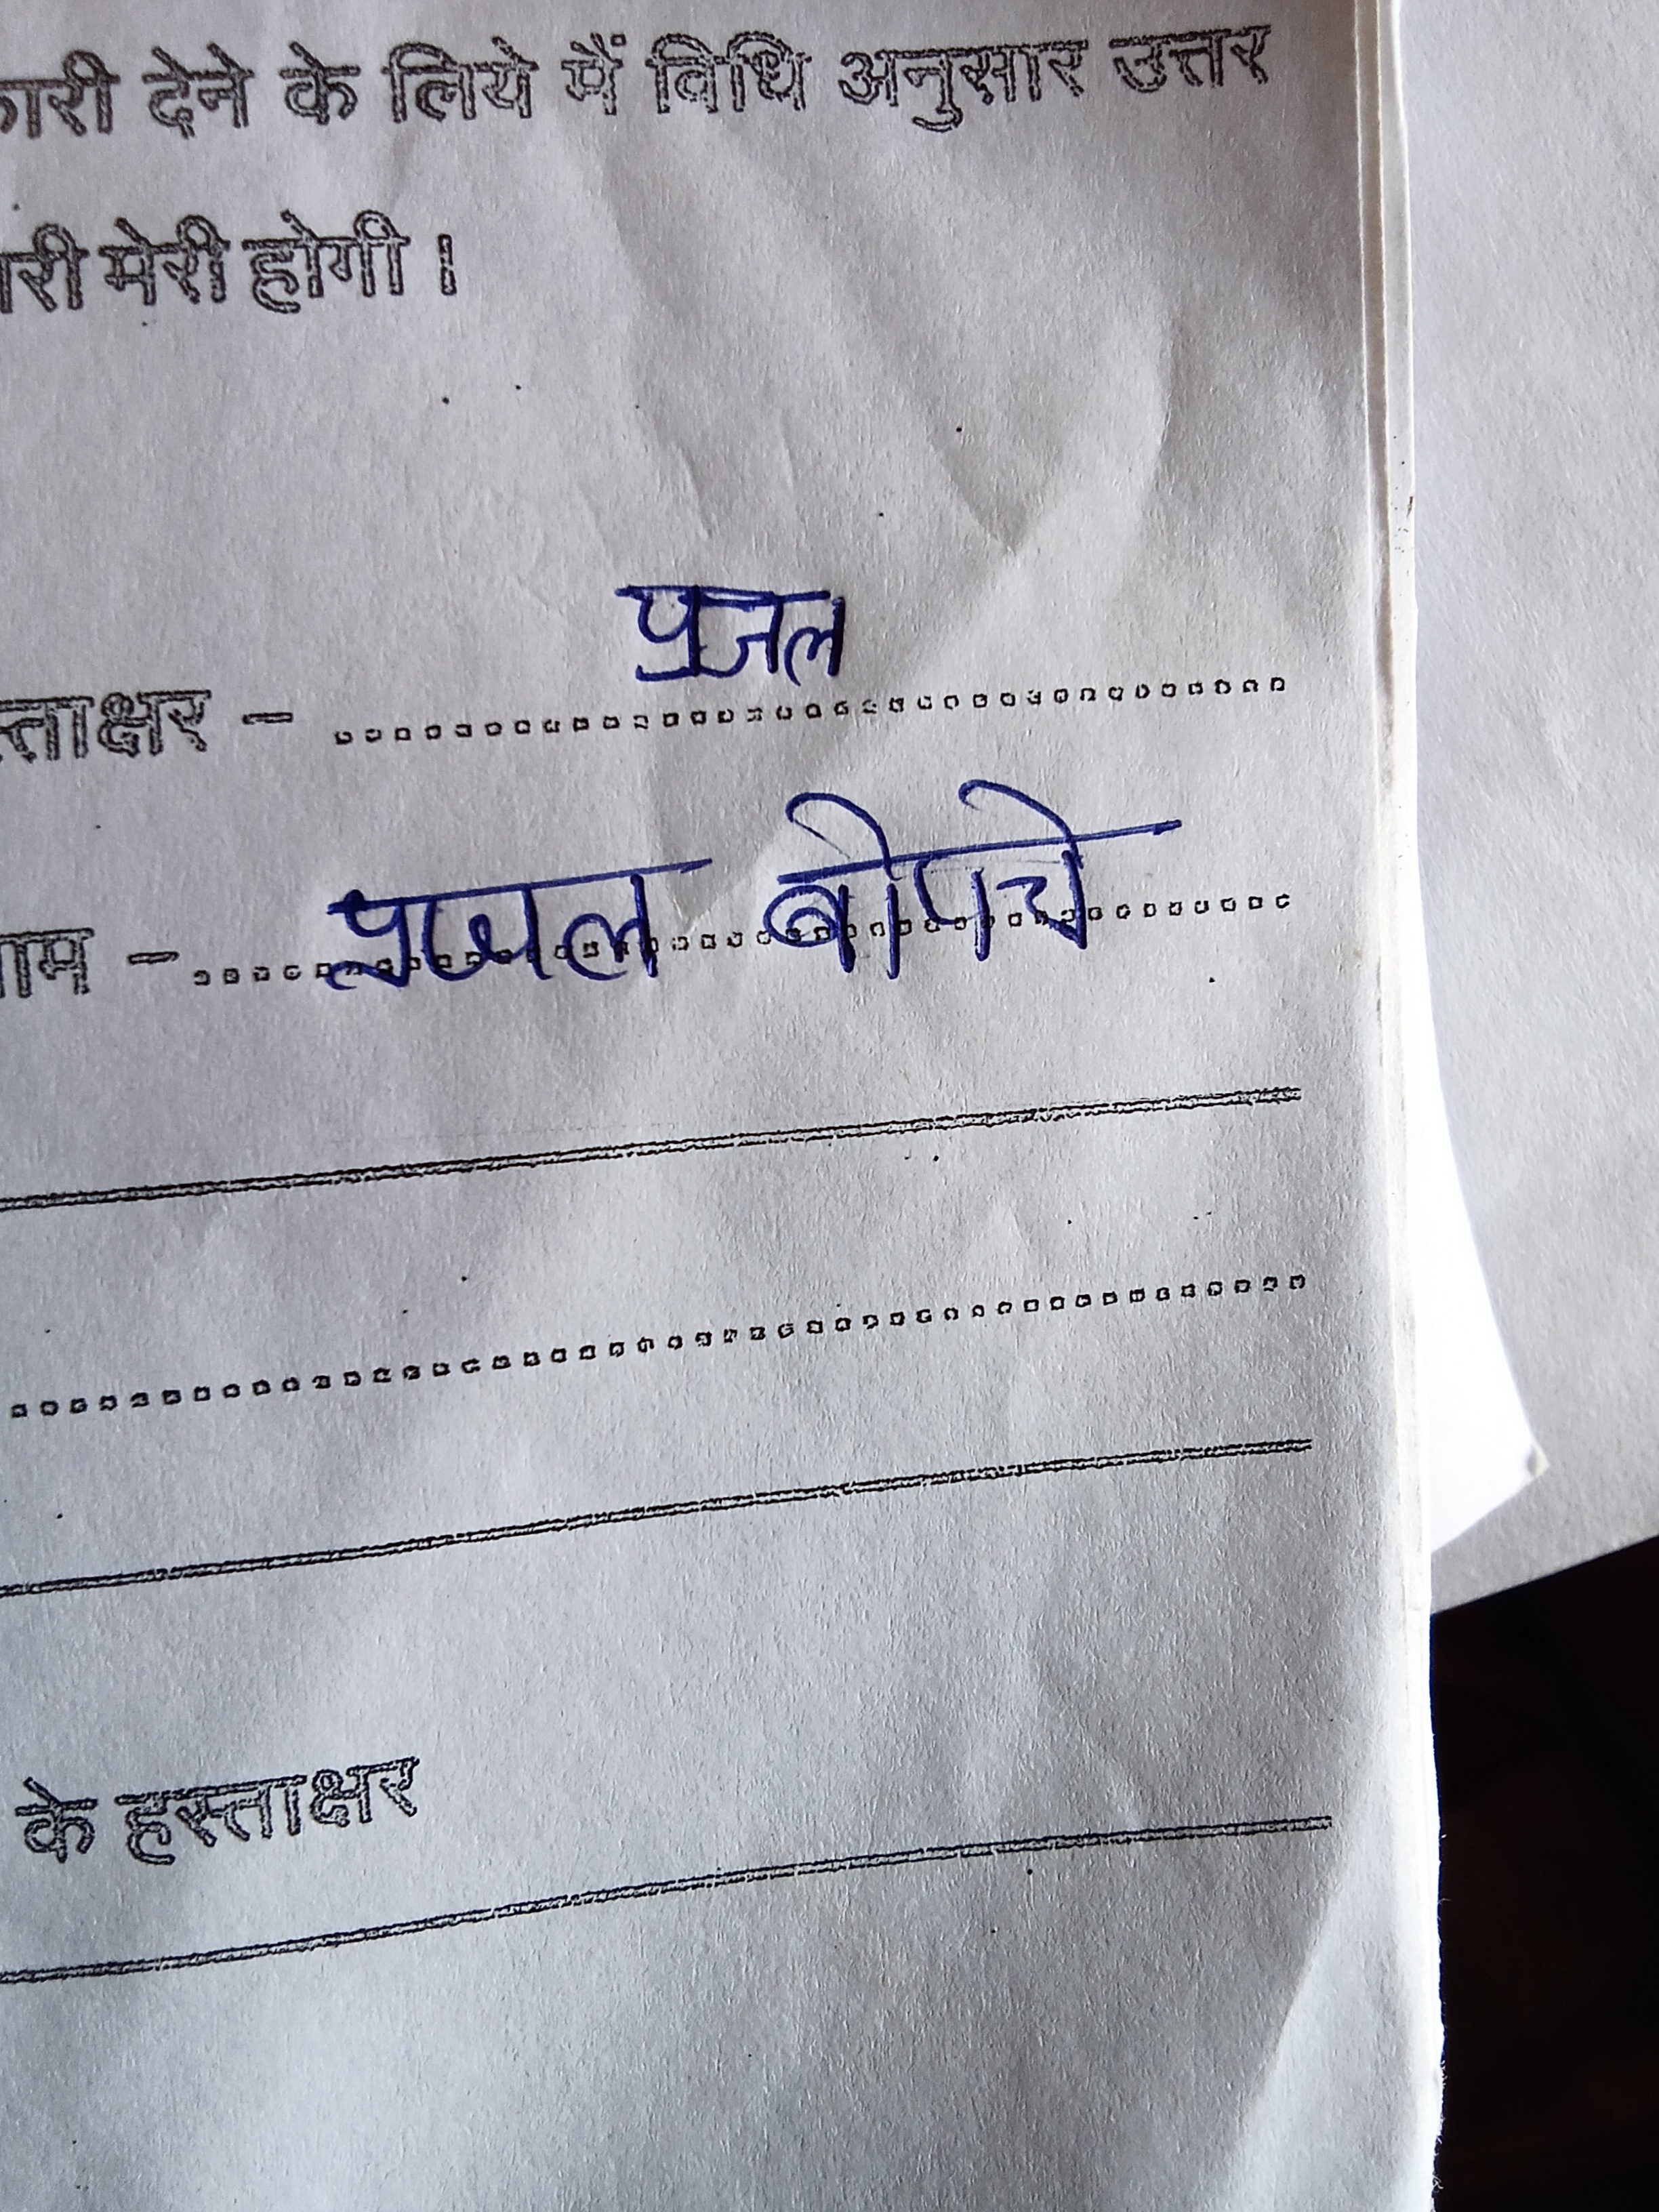 कारी देने के लिये मैं विधि अनुसार उत्तर
ारी मेरी होगी ।
प्रजल
स्ताक्षर – ........................
ाम – प्रज्वल बोपचे
........................
के हस्ताक्षर